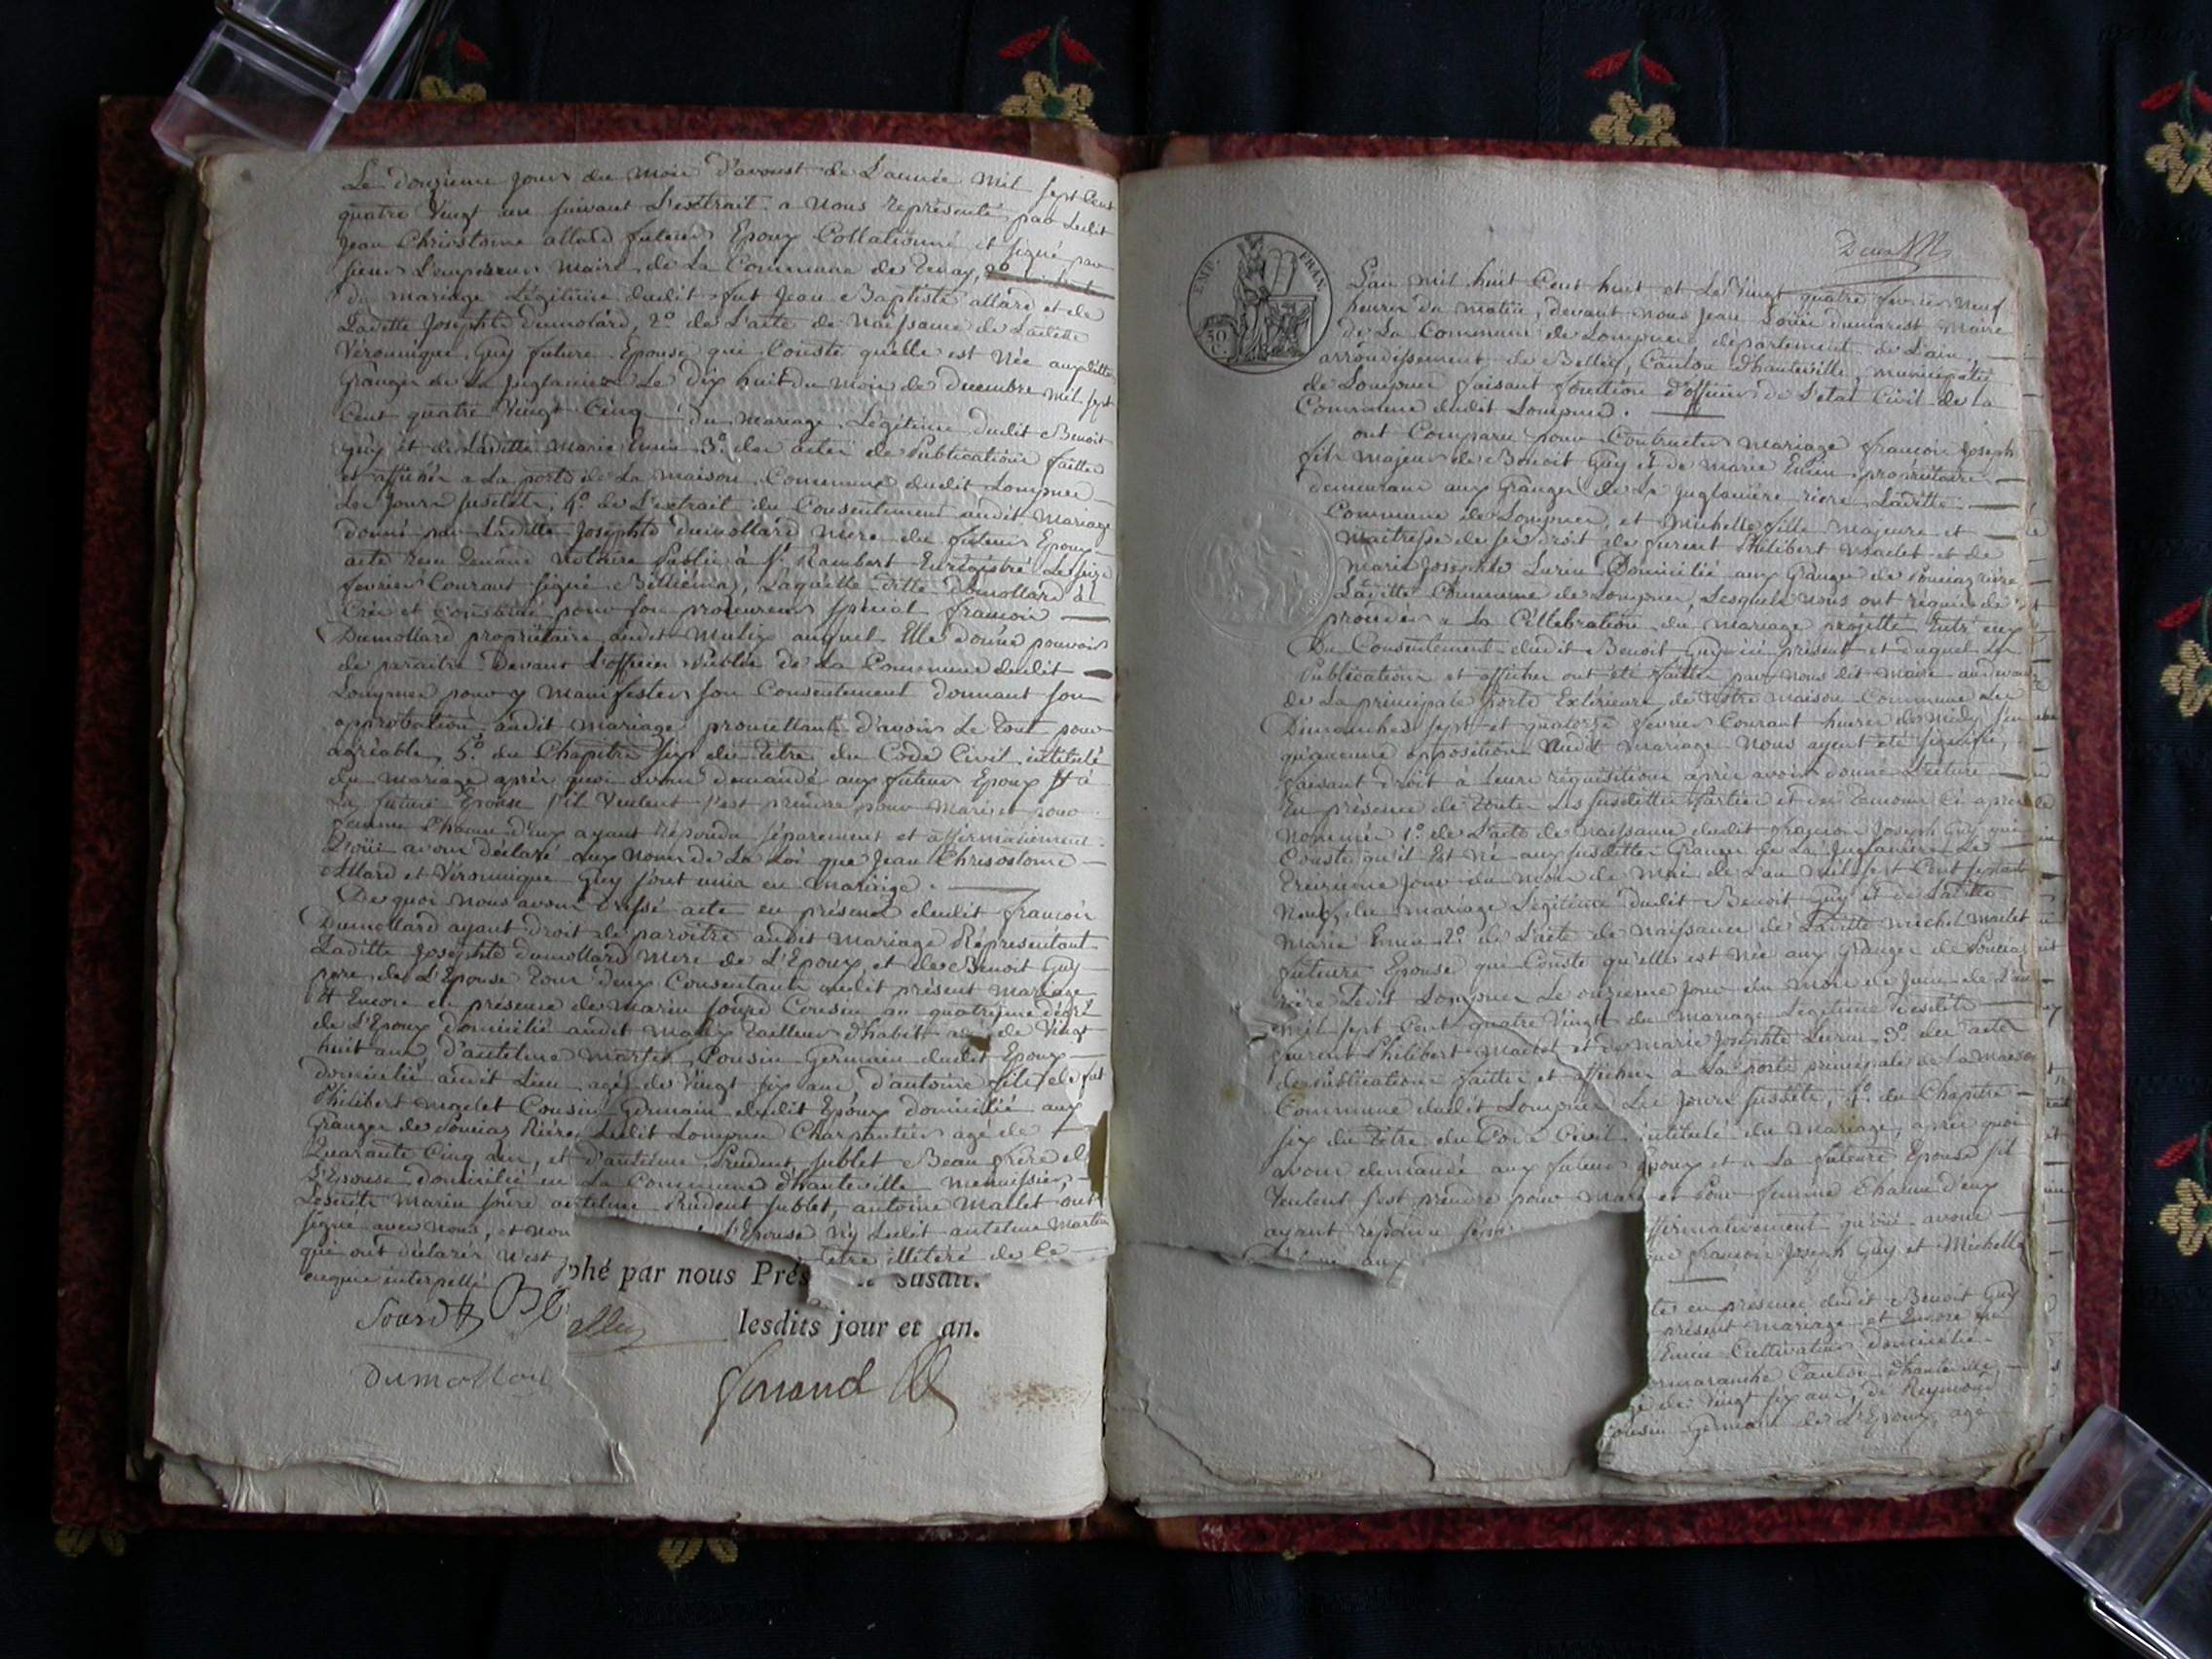 Le Douzieme jour du mois d'avoust de L'année mil sept Cent
quatre Vingt un suivant L'extrait a nous représenté par Ledit
Jean Chrisostome allard futur Epoux Collationné et signé par
sieur L'empereur Maire de La Commune de Tenay,
du mariage Légitime dudit fut Jean Baptiste allard et de
Laditte Josephte Dumolard, 2.º de L'acte de Naissance de Laditte
Véronique Guy future Epouse qui Conste qu'elle est Née auxdittes
Granges de La Juglaniere Le Dix huit du mois de decembre mil sept
Cent quatre Vingt Cinq du mariage Légitime dudit Benoit
Guy et de Laditte Marie Emin 3.º des actes de Publications faittes
et affichés a La porte de La maison Commune dudit Lompnes
Les Jours susdits, 4.º de L'extrait du Consentement audit Mariage
donné par Laditte Josephte Dumollard Mere du futur Epoux
acte reçu Notaire Public à S.t Rambert Enregistré Le seize
fevrier Courant signé Laquelle ditte Dumollard a
Crée et Constitué pour son procureur spécial françois
Dumollard propriétaire audit auquel Elle donne pouvoir
de paraitre Devant L'officier Public de La Commune dudit
Lompnes pour y Manifester son Consentement donnant son
approbation audit mariage promettant d'avoir Le tout pour
agréable, 5.º du Chapitre six du titre du Code Civil intitulé
du mariage après quoi avons demandé aux futur Epoux et à
La future Epouse s'il Veulent s'est prendre pour Mari et pour
femme Chacun d'Eux ayant Répondu séparement et affirmativement
avons déclaré aux Noms de La Loi que Jean Chrisostome
Allard et Véronique Guy sont unis en mariage.
De quoi nous avons dressé acte en présence dudit françois
Dumollard ayant droit de paroitre audit Mariage Réprésentant
Laditte Josephte Dumollard Mere de L'Epoux, et de Benoit Guy
pere de L'Epouse tous deux Consentants audit présent Mariage
Et Encore en présence de Marin Sourd Cousin au quatrieme dégré
de L'Epoux domicilié audit tailleur d'habits agé de Vingt
huit ans, d'antelme Martin Cousin Germain dudit Epoux
domicilié audit Lieu agé de Vingt six ans d'antoine fils de fut
Philibert Maclet Cousin Germain dudit Epoux domicilié aux
Granges de Ponciaz Riere Ledit Lompnes Charpentier agé de
Quarante Cinq ans, et d'antelme Prudent Sublet Beau frere de
L'Epouse domicilié en La Commune d'hauteville Menuisier
Lesdits Marin Sourd antelme Prudent Sublet, antoine Mallet ont
signé avec nous, et non L'Epouse ny Ledit antelme Martin
qui ont déclarer n'est être illitéré de Ce
enquis interpellé
phé par nous Prés susan.
lesdits jour et an.
Sourd
Dumollard
Gonand
EMP. FRAN.
50 C.
L'an mil huit Cent huit et Le Vingt quatre fevrier Neuf
heures du matin, devant nous Jean Louis dumarest Maire
de La Commune de Lompnes, département de L'ain,
arrondissement de Belley, Canton d'hauteville, municipalité
de Lompnes faisant fonction d'officier de L'etat Civil de La
Commune dudit Lompnes.
ont Comparu pour Contracter Mariage françois Joseph
fils Majeur de Benoit Guy et de Marie Emin propriétaire
demeurant aux Granges de La Juglaniere riere Laditte
Commune de Lompnes, et Michelle fille Majeure et
Maitresse de ses droit de furent Philibert Maclet et de
Marie Josephte Lurin Domicilié aux Granges de Ponciaz riere
Laditte Commune de Lompnes, Lesquels nous ont réquis de
procéder a La Célébration du mariage projetté Entr'eux
Du Consentement dudit Benoit Guy ici présent et duquel Les
Publications et affiches ont été faittes par nous dit Maire au devant
de La principale porte Extérieure de Notre Maison Commune les
Dimanches sept et quatorze fevrier Courant heures de Midy sans
qu'aucune opposition Audit mariage Nous ayent été signifié,
faisant droit à leurs réquisitions après avoir donné Lecture
En présence de toutes Les susdittes Parties et des temoins Ci après
Nommés 1.º de L'acte de Naissance dudit françois Joseph Guy qui
Conste qu'il Est né aux susdittes Granges de La Juglaniere Le
treizieme Jour du mois de Mai de L'an Mil sept Cent septante
Neuf, du mariage Légitime dudit Benoit Guy et de Laditte
Marie Emin 2.º de L'acte de Naissance de Laditte Michel Maclet
future Epouse qui Conste qu'elle est Née aux Granges de Ponciaz
riere Ledit Lompnes Le onzieme Jour du Mois de Juin de L'an
mil sept Cent quatre Vingt du mariage Légitime desdits
furent Philibert Maclet et de Marie Josephte Lurin 3.º des actes
de publications faittes et affiches a La porte principale de la maison
Commune dudit Lompnes Les Jours susdits, 4.º du Chapitre
six du titre du Code Civil intitulé du Mariage, après quoi
avons demandé aux futur Epoux et a La future Epouse s'il
Veulent s'est prendre pour Mari et Pour femme Chacun d'eux
ayant repondu sepa ffirmativement qu'oui avons
aux que françois Joseph Guy et Michelle
te en présence dudit Benoit Guy
présent Mariage et Encore en
Emin Cultivateur domicilié
ormaranche Canton d'hauteville
gé de Vingt six ans, de Reymond
Cousin germain de L'Epoux, agé